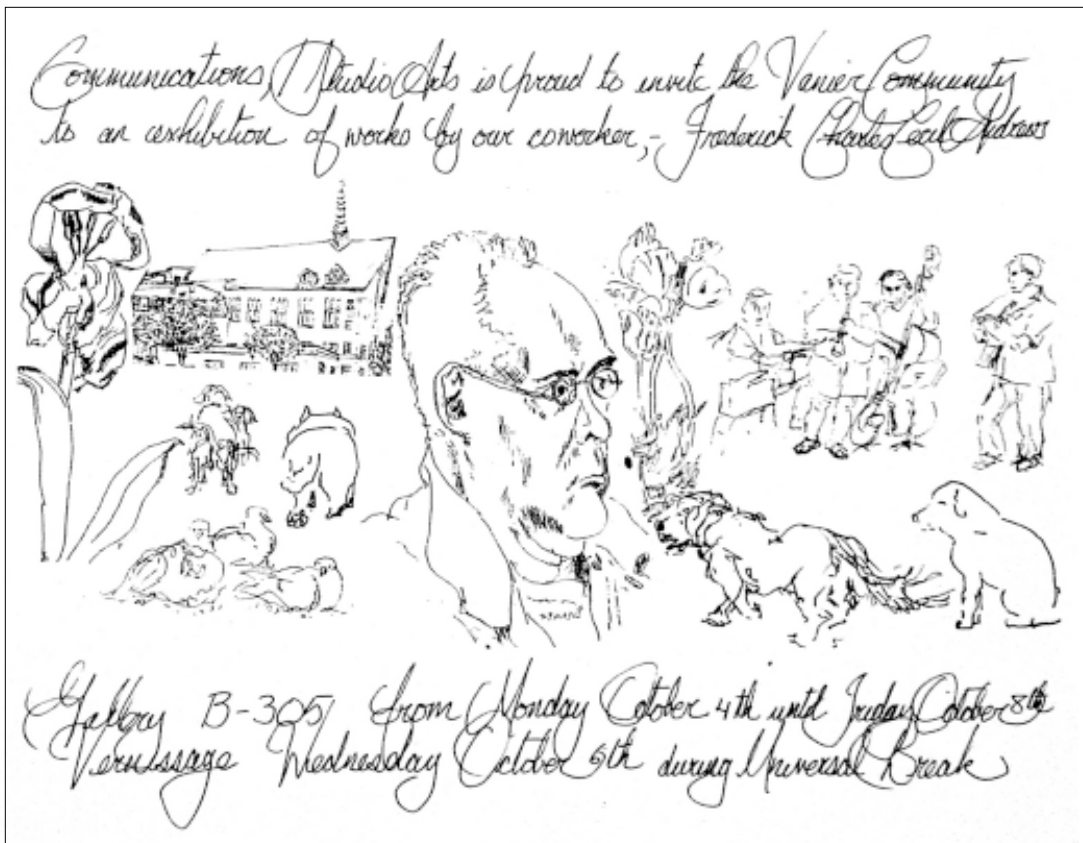 Communications, Studio Arts is proud to invite the Vanier Community
to an exhibition of works by our coworker,- Frederick Charles Cecil Andrews
Gallery B-305 from Monday October 4th until Friday October 8th
Vernissage Wednesday October 6th during Universal Break